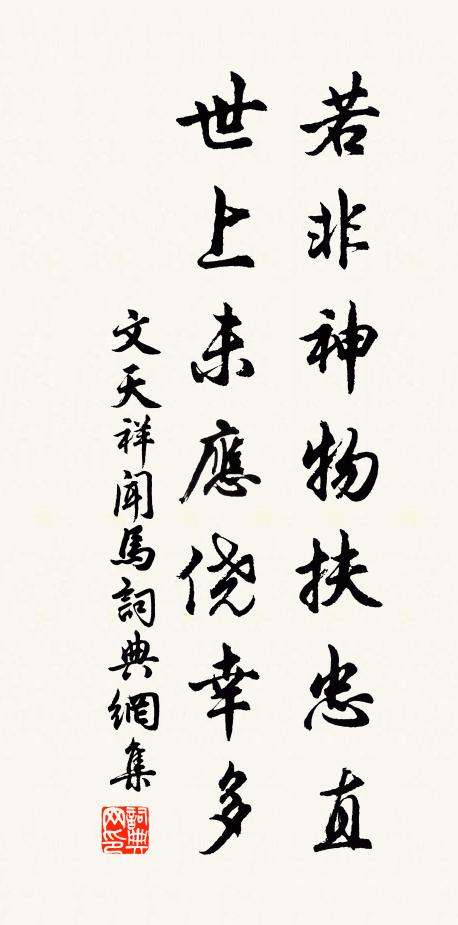 若非神物扶忠直
世上未應僥幸多
文天祥聞馬詞典網集
詞典
网印